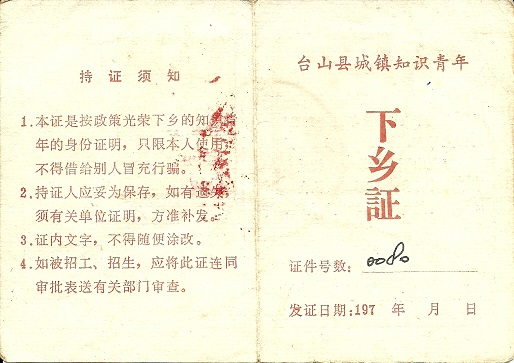 持证须知
1.本证是按政策光荣下乡的知青
年的身份证明，只限本人使用，
不得借给别人冒充行骗。
2.持证人应妥为保存，如有遗失，
须有关单位证明，方准补发。
3.证内文字，不得随便涂改。
4.如被招工、招生，应将此证连同
审批表送有关部门审查。
台山县城镇知识青年
下乡証
证件号数：0080
发证日期:197 年 月 日